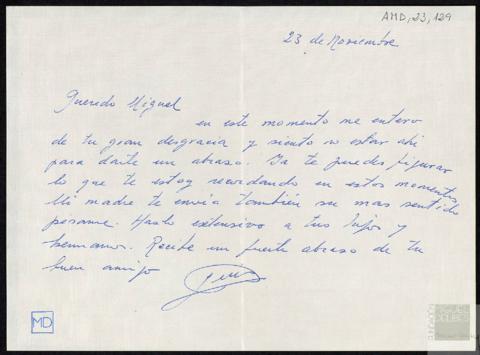 AMD, 23, 129
23 de Noviembre
Querido Miguel
en este momento me entero
de tu gran desgracia y siento no estar ahi
para darte un abrazo. Ya te puedes figurar
lo que te estoy recordando en estos momentos
Mi madre te envia también su mas sentido
pesame. Hazlo extensivo a tus hijos y
hermanos. Recibe un fuerte abrazo de tu
buen amigo
MD
FUNDACIÓN
MIGUEL
DELIBES